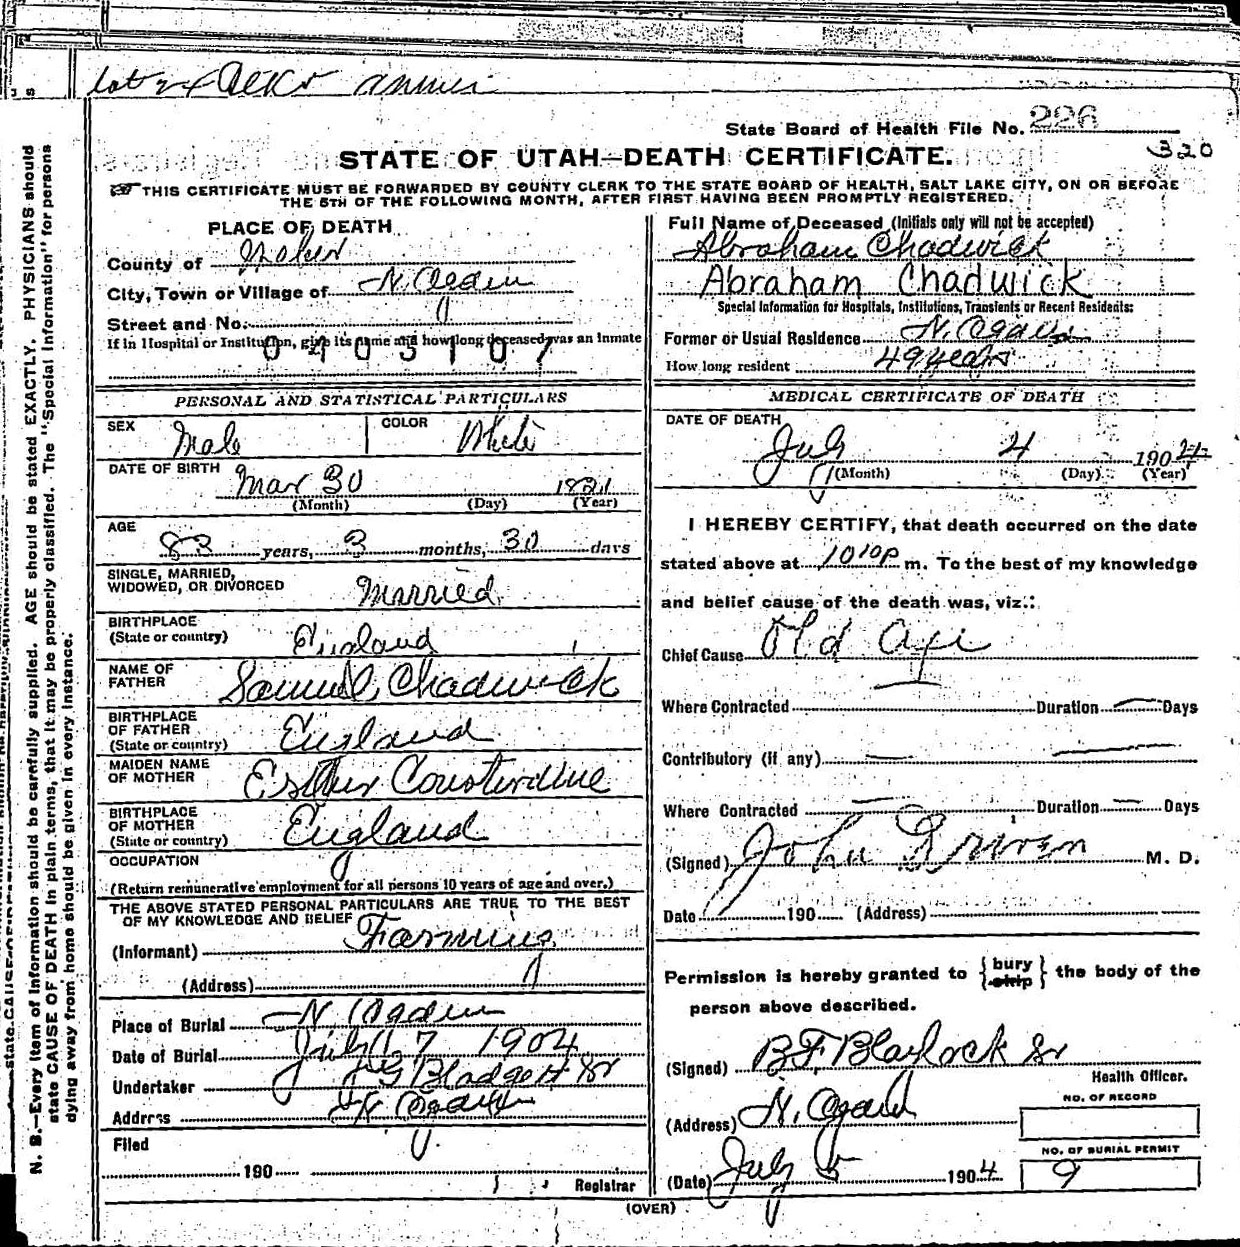 State Board of Health File No. 226
320
STATE OF UTAH—DEATH CERTIFICATE.
THIS CERTIFICATE MUST BE FORWARDED BY COUNTY CLERK TO THE STATE BOARD OF HEALTH, SALT LAKE CITY, ON OR BEFORE
THE 5TH OF THE FOLLOWING MONTH, AFTER FIRST HAVING BEEN PROMPTLY REGISTERED.
N. B.—Every item of information should be carefully supplied. AGE should be stated EXACTLY. PHYSICIANS should
state CAUSE OF DEATH in plain terms, that it may be properly classified. The "Special Information" for persons
dying away from home should be given in every instance.
PLACE OF DEATH
County of Weber
City, Town or Village of N. Ogden
Street and No.
If in Hospital or Institution, give its name and how long deceased was an inmate
0403107
PERSONAL AND STATISTICAL PARTICULARS
SEX Male COLOR White
DATE OF BIRTH Mar 30 1821
(Month) (Day) (Year)
AGE
83 years, 3 months, 30 days
SINGLE, MARRIED,
WIDOWED, OR DIVORCED Married
BIRTHPLACE
(State or country) England
NAME OF
FATHER Samuel Chadwick
BIRTHPLACE
OF FATHER
(State or country) England
MAIDEN NAME
OF MOTHER Esther Consterdine
BIRTHPLACE
OF MOTHER
(State or country) England
OCCUPATION
(Return remunerative employment for all persons 10 years of age and over.)
THE ABOVE STATED PERSONAL PARTICULARS ARE TRUE TO THE BEST
OF MY KNOWLEDGE AND BELIEF
(Informant) Farming
(Address)
Place of Burial N. Ogden
Date of Burial July 7 1904
Undertaker Blodgett Sr
Address N Ogden
Filed
190
Registrar
Full Name of Deceased (Initials only will not be accepted)
Abraham Chadwick
Abraham Chadwick
Special Information for Hospitals, Institutions, Transients or Recent Residents:
Former or Usual Residence N. Ogden
How long resident 49 years
MEDICAL CERTIFICATE OF DEATH
DATE OF DEATH
July 4 1904
(Month) (Day) (Year)
I HEREBY CERTIFY, that death occurred on the date
stated above at 10 10 P m. To the best of my knowledge
and belief cause of the death was, viz.:
Chief Cause Old Age
Where Contracted Duration — Days
Contributory (if any) —
Where Contracted — Duration — Days
(Signed) John Driven M. D.
Date 190 (Address)
Permission is hereby granted to {bury ship} the body of the
person above described.
(Signed) B. F. Blaylock Sr
Health Officer.
(Address) N. Ogden
NO. OF RECORD
(Date) July 5 1904
NO. OF BURIAL PERMIT
9
(OVER)